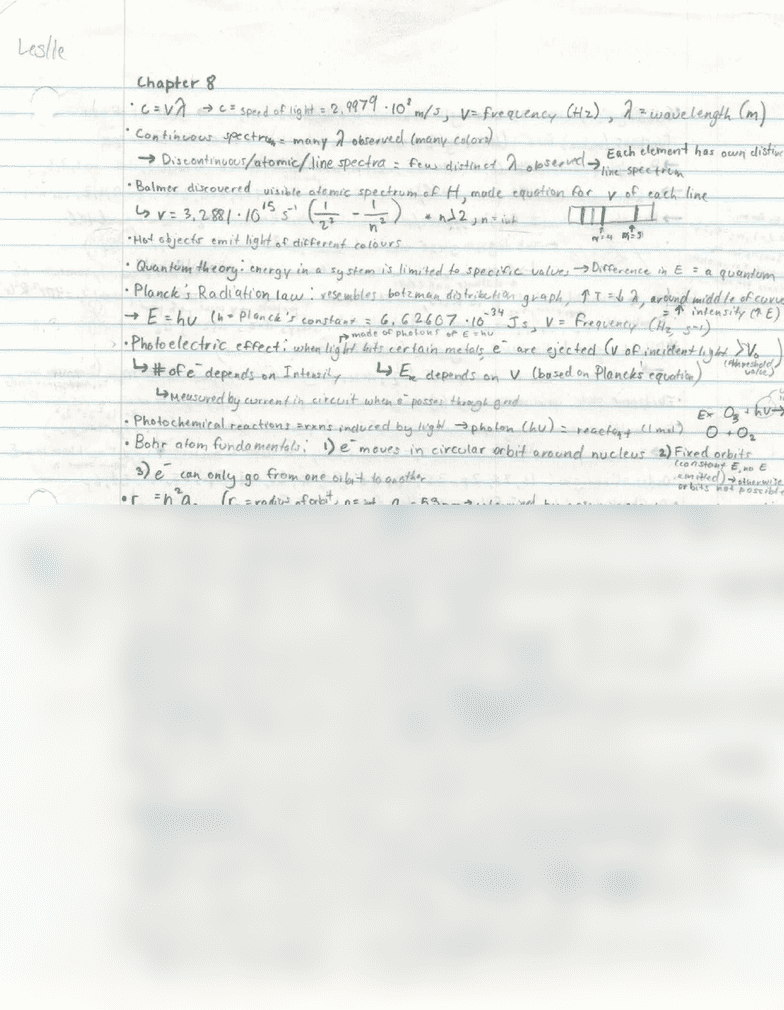 Leslie
Chapter 8
• c = vλ → c = speed of light = 2.9979 · 10⁸ m/s, v = frequency (Hz), λ = wavelength (m)
• Continuous spectrum = many λ observed (many colors)
→ Discontinuous/atomic/line spectra = few distinct λ observed → Each element has own
line spectrum
• Balmer discovered visible atomic spectrum of H, made equation for v of each line
↳ v = 3.2881 · 10¹⁵ s⁻¹ (1/2² - 1/n²) * n>2, n = int
n=4 n=3
• Hot objects emit light of different colours
• Quantum theory: energy in a system is limited to specific values → Difference in E = a quantum
• Planck's Radiation law: resembles botzman distribution graph, ↑T = ↓λ, around middle of curve
= ↑ intensity (↑E)
→ E = hv (h = Planck's constant = 6.62607 · 10⁻³⁴ Js, v = frequency (Hz, s⁻¹)
made of photons of E = hv
• Photoelectric effect: when light hits certain metals, e⁻ are ejected (v of incident light > V₀)
(threshold
value)
↳ # of e⁻ depends on Intensity ↳ Eₖ depends on v (based on Planck's equation)
↳ Measured by current in circuit when e⁻ passes through grid
• Photochemical reactions = rxns induced by light → photon (hv) = reactant (1 mol) Ex O₃ + hv →
O + O₂
• Bohr atom fundamentals: 1) e⁻ moves in circular orbit around nucleus 2) Fixed orbits
(constant E, no E
emitted) → otherwise
orbits not possible
3) e⁻ can only go from one orbit to another
• r = n²a₀ (r = radius of orbit, n = int